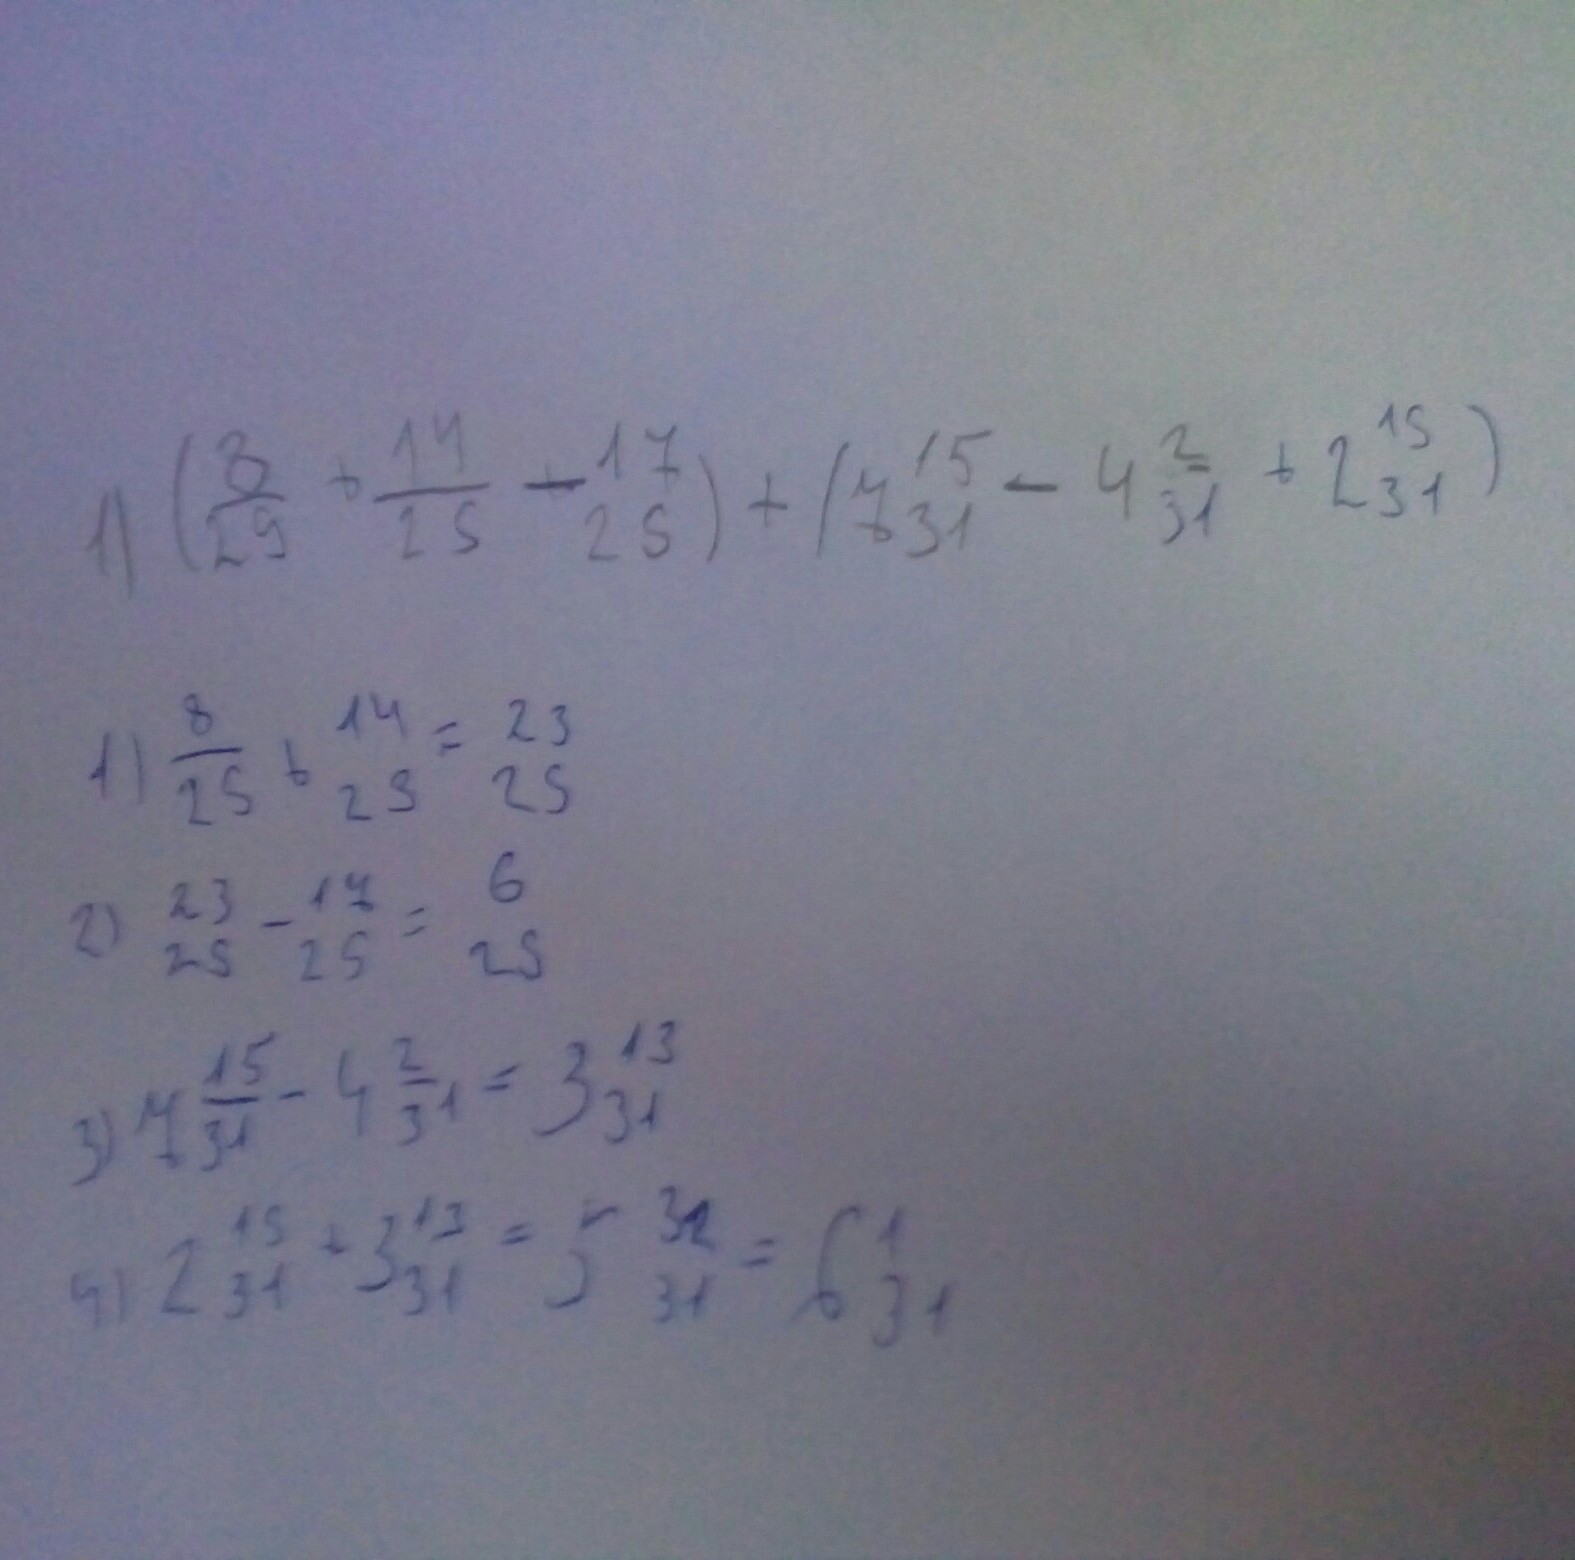 1) (8/25 + 14/25 - 17/25) + (7 15/31 - 4 2/31 + 2 15/31)
1) 8/25 + 14/25 = 23/25
2) 23/25 - 17/25 = 6/25
3) 7 15/31 - 4 2/31 = 3 13/31
4) 2 15/31 + 3 13/31 = 5 32/31 = 6 1/31